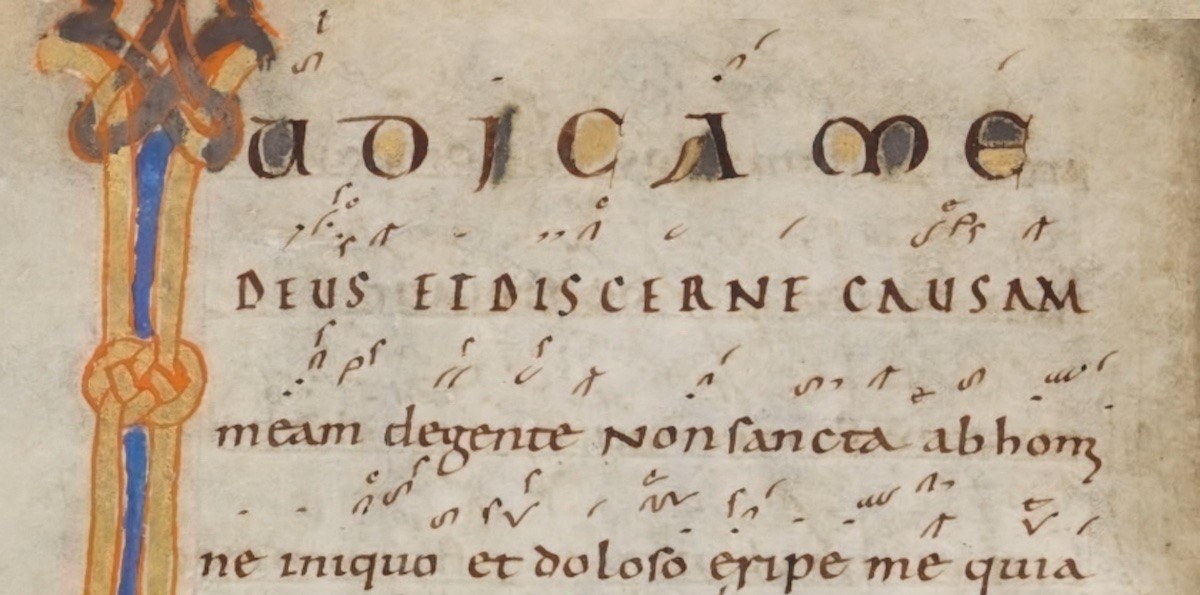 IUDICA ME
DEUS ET DISCERNE CAUSAM
meam de gente non sancta ab homi
ne iniquo et doloso eripe me quia